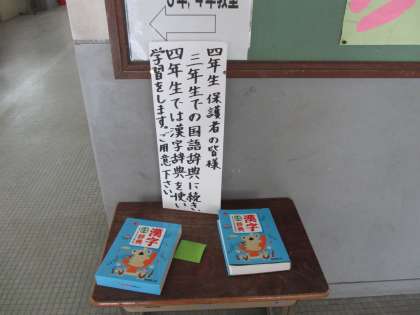 四年生 保護者の皆様
三年生での国語辞典に続き、
四年生では漢字辞典を使い
学習をします。ご用意下さい。
漢字
辞典
漢字
辞典